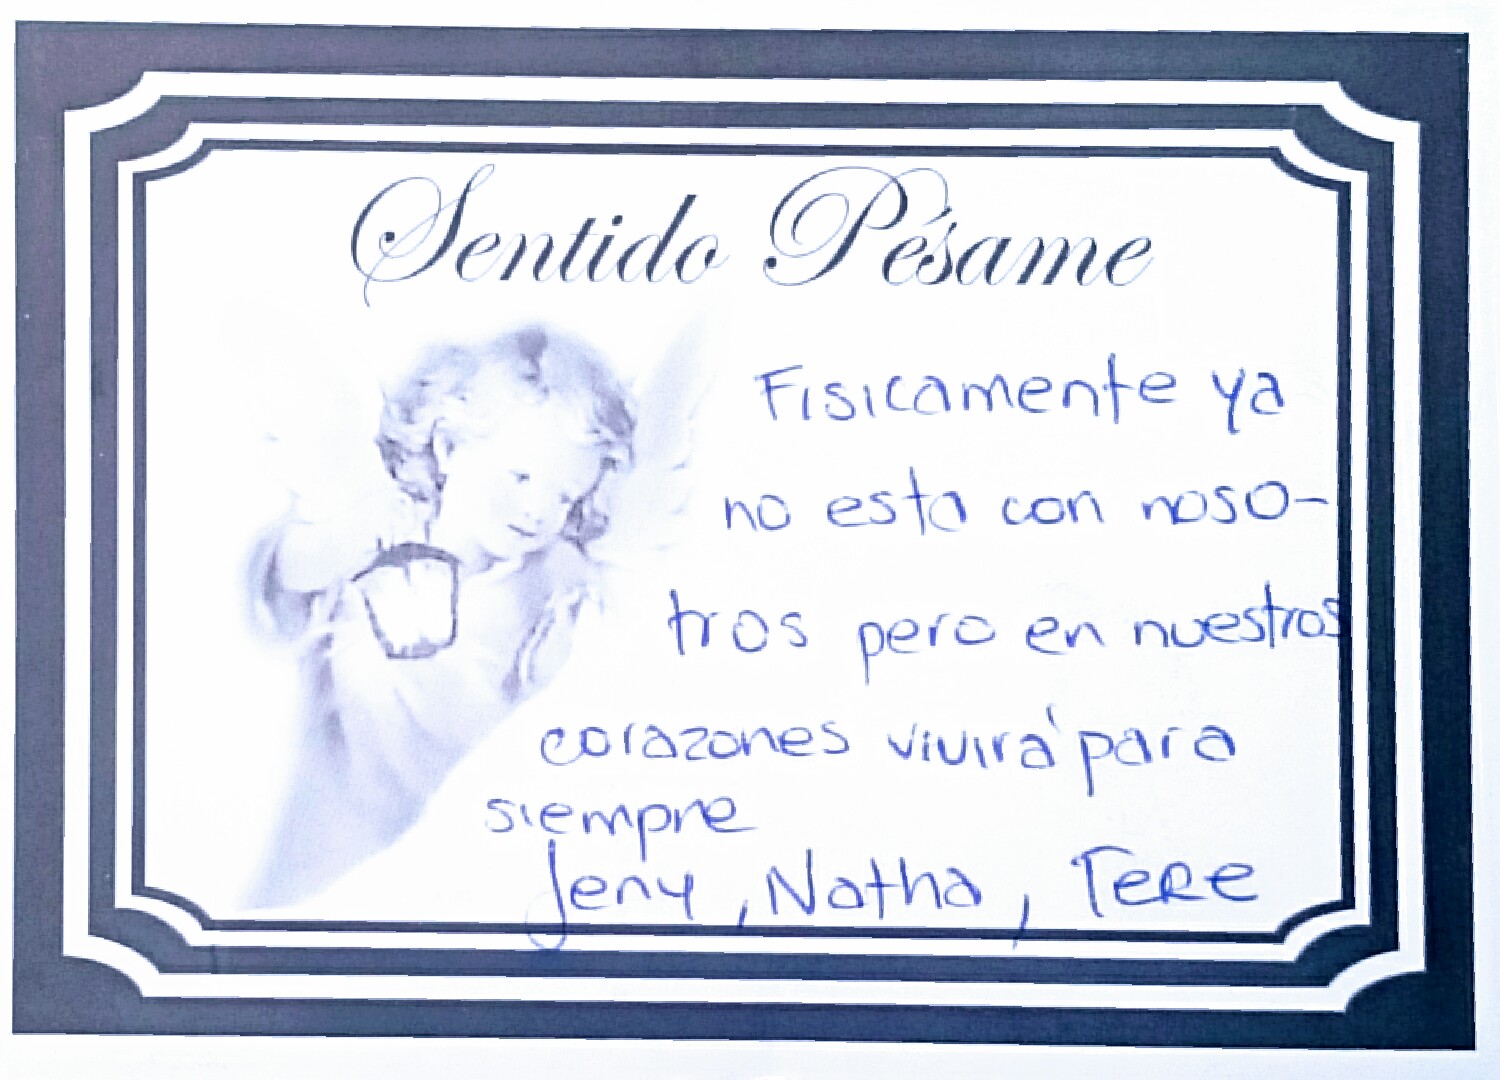 Sentido Pésame
Fisicamente ya
no esta con noso-
tros pero en nuestros
corazones vivirá para
siempre
Jeny, Natha, Tere